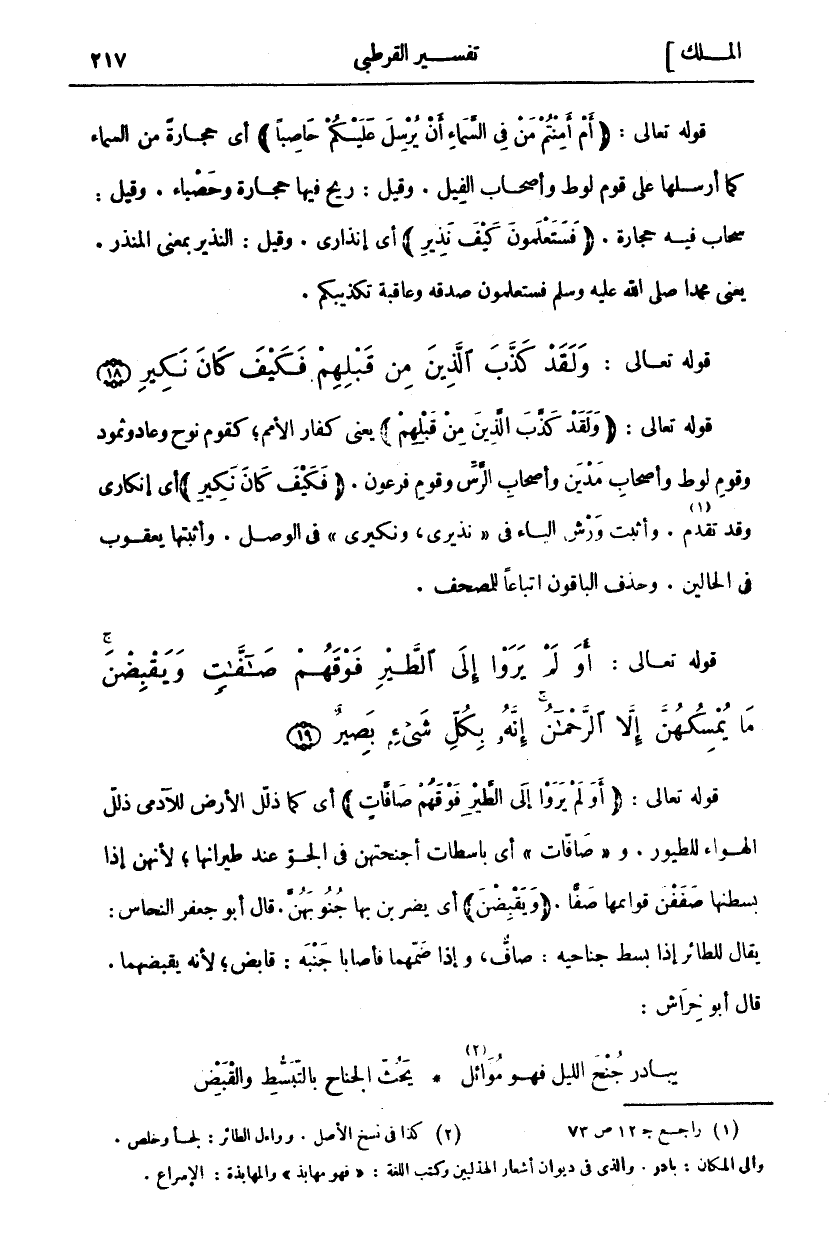 الملك] تفسير القرطبي ٢١٧
قوله تعالى : ﴿ أَمْ أَمِنْتُمْ مَنْ فِى السَّمَاءِ أَنْ يُرْسِلَ عَلَيْكُمْ حَاصِباً ﴾ أى حجارةً من السماء
كما أرسلها على قوم لوط وأصحاب الفيل . وقيل : ريح فيها حجارة وحَصْباء . وقيل :
سحاب فيه حجارة . ﴿ فَسَتَعْلَمونَ كَيْفَ نَذِيرِ ﴾ أى إنذارى . وقيل : النذير بمعنى المنذر .
يعنى محمدا صلى الله عليه وسلم فستعلمون صدقه وعاقبة تكذيبكم .
قوله تعالى : وَلَقَدْ كَذَّبَ ٱلَّذِينَ مِن قَبْلِهِمْ فَكَيْفَ كَانَ نَكِيرِ ١٨
قوله تعالى : ﴿ وَلَقَدْ كَذَّبَ الَّذِينَ مِنْ قَبْلِهِمْ ﴾ يعنى كفار الأمم؛ كقوم نوح وعاد وثمود
وقوم لوط وأصحاب مَدْيَن وأصحاب الرَّسّ وقوم فرعون . ﴿ فَكَيْفَ كَانَ نَكِيرِ ﴾ أى إنكارى
وقد تقدّم (١) . وأثبت وَرْش الياء فى « نذيرى، ونكيرى » فى الوصل . وأثبتها يعقوب
فى الحالين . وحذف الباقون اتباعاً للمصحف .
قوله تعالى : أَوَ لَمْ يَرَوْا إِلَى ٱلطَّيْرِ فَوْقَهُمْ صَـٰٓفَّـٰتٍ وَيَقْبِضْنَ ۚ
مَا يُمْسِكُهُنَّ إِلَّا ٱلرَّحْمَـٰنُ ۚ إِنَّهُۥ بِكُلِّ شَىْءٍ بَصِيرٌ ١٩
قوله تعالى : ﴿ أَوَ لَمْ يَرَوْا إِلَى الطَّيْرِ فَوْقَهُمْ صَافَّاتٍ ﴾ أى كما ذلّل الأرض للآدمى ذلل
الهواء للطيور . و « صَافّات » أى باسطات أجنحتهن فى الجوّ عند طيرانها ؛ لأنهن إذا
بسطنها صَفَفْن قوائمها صَفًّا . ﴿ وَيَقْبِضْنَ ﴾ أى يضربن بها جُنُوبَهُنَّ. قال أبو جعفر النحاس :
يقال للطائر إذا بسط جناحيه : صافٌّ، وإذا ضَمّهما فأصابا جَنْبَه : قابض؛ لأنه يقبضهما .
قال أبو خِرَاش :
يبادر جُنْحَ الليل فهو مُوَائل (٢) * يَحُثّ الجناح بالتَّبَسُّط والقَبْض
(١) راجع جـ ١٢ ص ٧٣ (٢) كذا فى نسخ الأصل . وواءل الطائر : لجأ وخلص .
والى المكان : بادر . والذى فى ديوان أشعار الهذليين وكتب اللغة : « فهو مهابذ » والمهابذة : الإسراع .